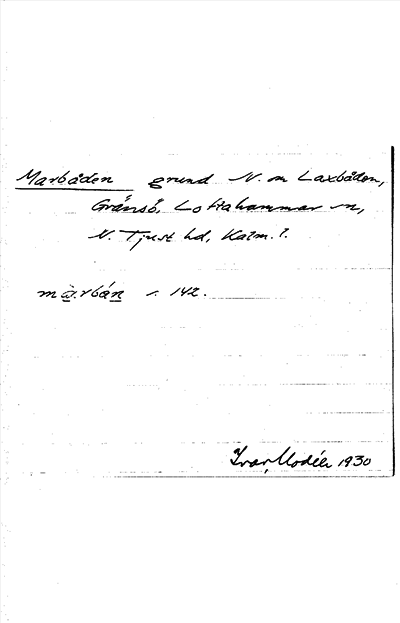 Marbåden grund N. om Laxbåden,
Gränsö, Loftahammar sn,
N. Tjust hd, Kalm. l.
mɑ̀.rbån s. 142.
Ivar Modéer 1930